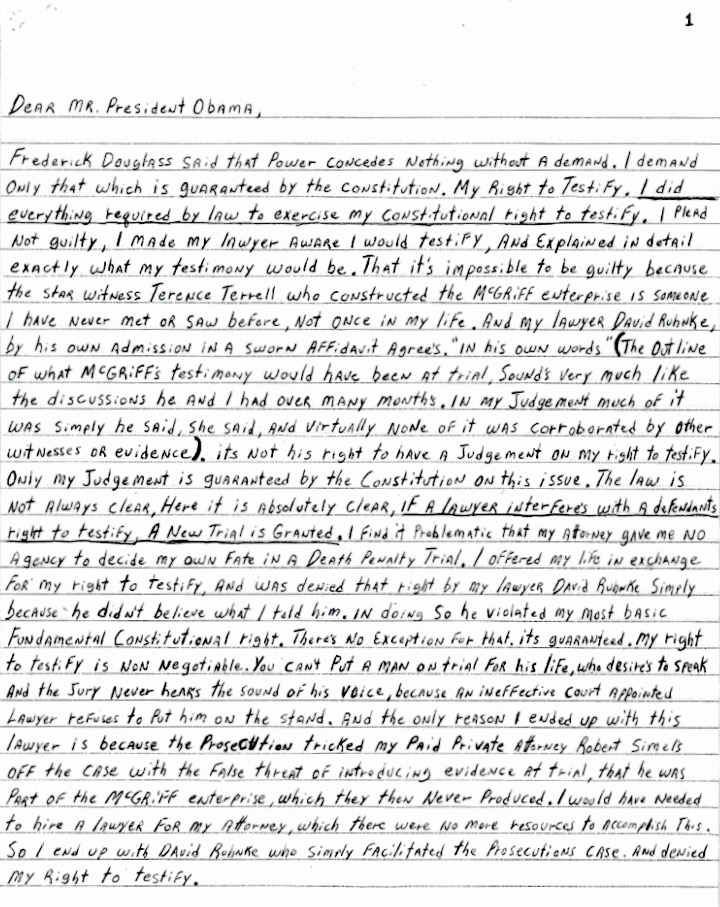 1
Dear Mr. President Obama,
Frederick Douglass said that Power concedes Nothing without A demand. I demand
Only that which is guaranteed by the Constitution. My Right to Testify. I did
everything required by law to exercise my Constitutional right to testify. I Plead
Not guilty, I made my lawyer aware I would testify, And Explained in detail
exactly what my testimony would be. That it's impossible to be guilty because
the star witness Terence Terrell who constructed the McGriff enterprise is someone
I have never met or saw before, Not once in my life. And my lawyer David Ruhnke,
by his own Admission in A sworn Affidavit Agree's. "In his own words" (The Outline
of what McGriff's testimony would have been at trial, Sound's very much like
the discussions he and I had over many month's. In my Judgement much of it
was simply he said, she said, and virtually none of it was corroborated by other
witnesses or evidence). its not his right to have a Judgement on my right to testify.
Only my Judgement is guaranteed by the Constitution on this issue. The law is
Not Always clear, Here it is Absolutely Clear, If A lawyer interfere's with A defendants
right to testify, A New Trial is Granted. I find it Problematic that my Attorney gave me No
Agency to decide my own Fate in A Death Penalty Trial. I offered my life in exchange
for my right to testify, And was denied that right by my lawyer David Ruhnke Simply
because he didn't believe what I told him. In doing So he violated my most basic
Fundamental Constitutional right. There's No Exception for that. its guaranteed. My right
to testify is Non Negotiable. You can't Put A man on trial for his life, who desire's to speak
And the Jury Never hears the sound of his voice, because An ineffective Court Appointed
Lawyer refuses to Put him on the stand. And the only reason I ended up with this
lawyer is because the Prosecution tricked my Paid Private Attorney Robert Simels
off the case with the False threat of introducing evidence At trial, that he was
Part of the McGriff enterprise, which they then Never Produced. I would have Needed
to hire A lawyer For my Attorney, which there were No more resources to Accomplish This.
So I end up with David Ruhnke who Simply Facilitated the Prosecutions case. And denied
my Right to testify.